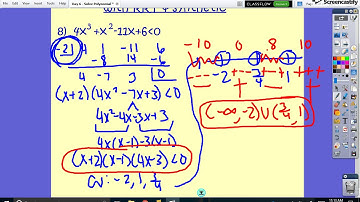 with RRT & synthetic
8) 4x³+x²-11x+6<0
-2| 4 1 -11 6
-8 14 -6
4 -7 3 0
(x+2)(4x²-7x+3)<0
4x²-4x-3x+3
4x(x-1)-3(x-1)
(x+2)(x-1)(4x-3)<0
CV: -2, 1, ¾
-10 0 .8 10
-2 ¾ 1
- + - +
(-∞,-2)∪(¾,1)